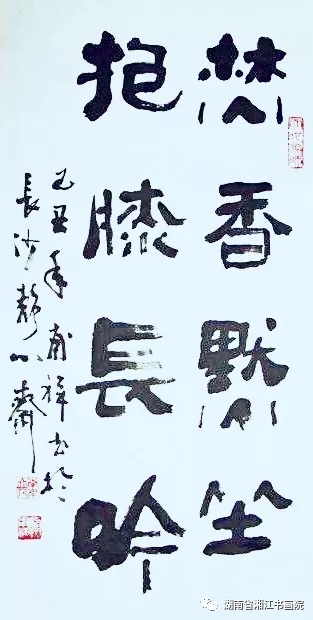 焚香默坐
抱膝長吟
己丑年甫祥書於
長沙静心齋
湖南省湘江书画院